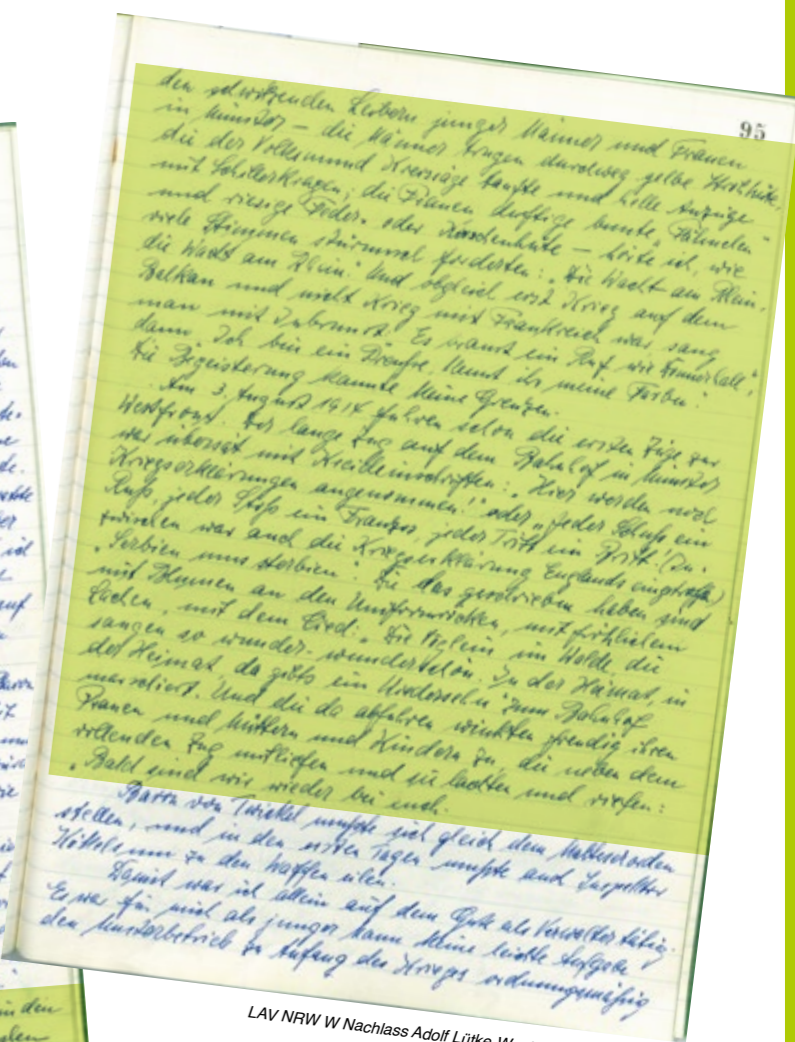 95
den schwitzenden Leibern junger Männer und Frauen
in Münster – die Männer trugen durchweg gelbe Strohhüte,
die der Volksmund Kreissäge taufte und helle Anzüge
mit Schillerkragen; die Frauen duftige bunte „Fähnchen"
und riesige Feder- oder Hüte – hörte ich, wie
viele Stimmen stürmisch forderten: „Die Wacht am Rhein,
die Wacht am Rhein." Und obgleich erst Krieg auf dem
Balkan und nicht Krieg mit Frankreich war, sang
man mit Inbrunst: Es braust ein Ruf wie Donnerhall,"
dann „Ich bin ein Preuße, kennt ihr meine Farben".
Die Begeisterung kannte keine Grenzen.
Am 3. August 1914 fuhren schon die ersten Züge zur
Westfront. Der lange Zug auf dem Bahnhof in Münster
war übersät mit Kreideinschriften: „Hier werden noch
Kriegserklärungen angenommen!" oder „Jeder Schuß ein
Ruß, jeder Stoß ein Franzos, jeder Tritt ein Britt." (In-
zwischen war auch die Kriegserklärung Englands eingetroffen)
„Serbien muss sterbien". Die das geschrieben haben sind
mit Blumen an den Uniformröcken, mit fröhlichem
Lachen, mit dem Lied: „Die Vöglein im Walde, die
sangen so wunder- wunderschön. In der Heimat, in
der Heimat, da gibts ein Wiedersehn" zum Bahnhof
marschiert. Und die da abfuhren winkten freudig ihren
Frauen und Müttern und Kindern zu, die neben dem
rollenden Zug mitliefen und sie lachten und riefen:
„Bald sind wir wieder bei euch.
Baron von Twickel mußte sich gleich dem Malteserorden
stellen, und in den ersten Tagen mußte auch Inspektor
zu den Waffen eilen.
Damit war ich allein auf dem Gute als Verwalter tätig.
Es war für mich als junger Mann keine leichte Aufgabe,
den Musterbetrieb zu Anfang des Krieges ordnungsmäßig
LAV NRW W Nachlass Adolf Lütke